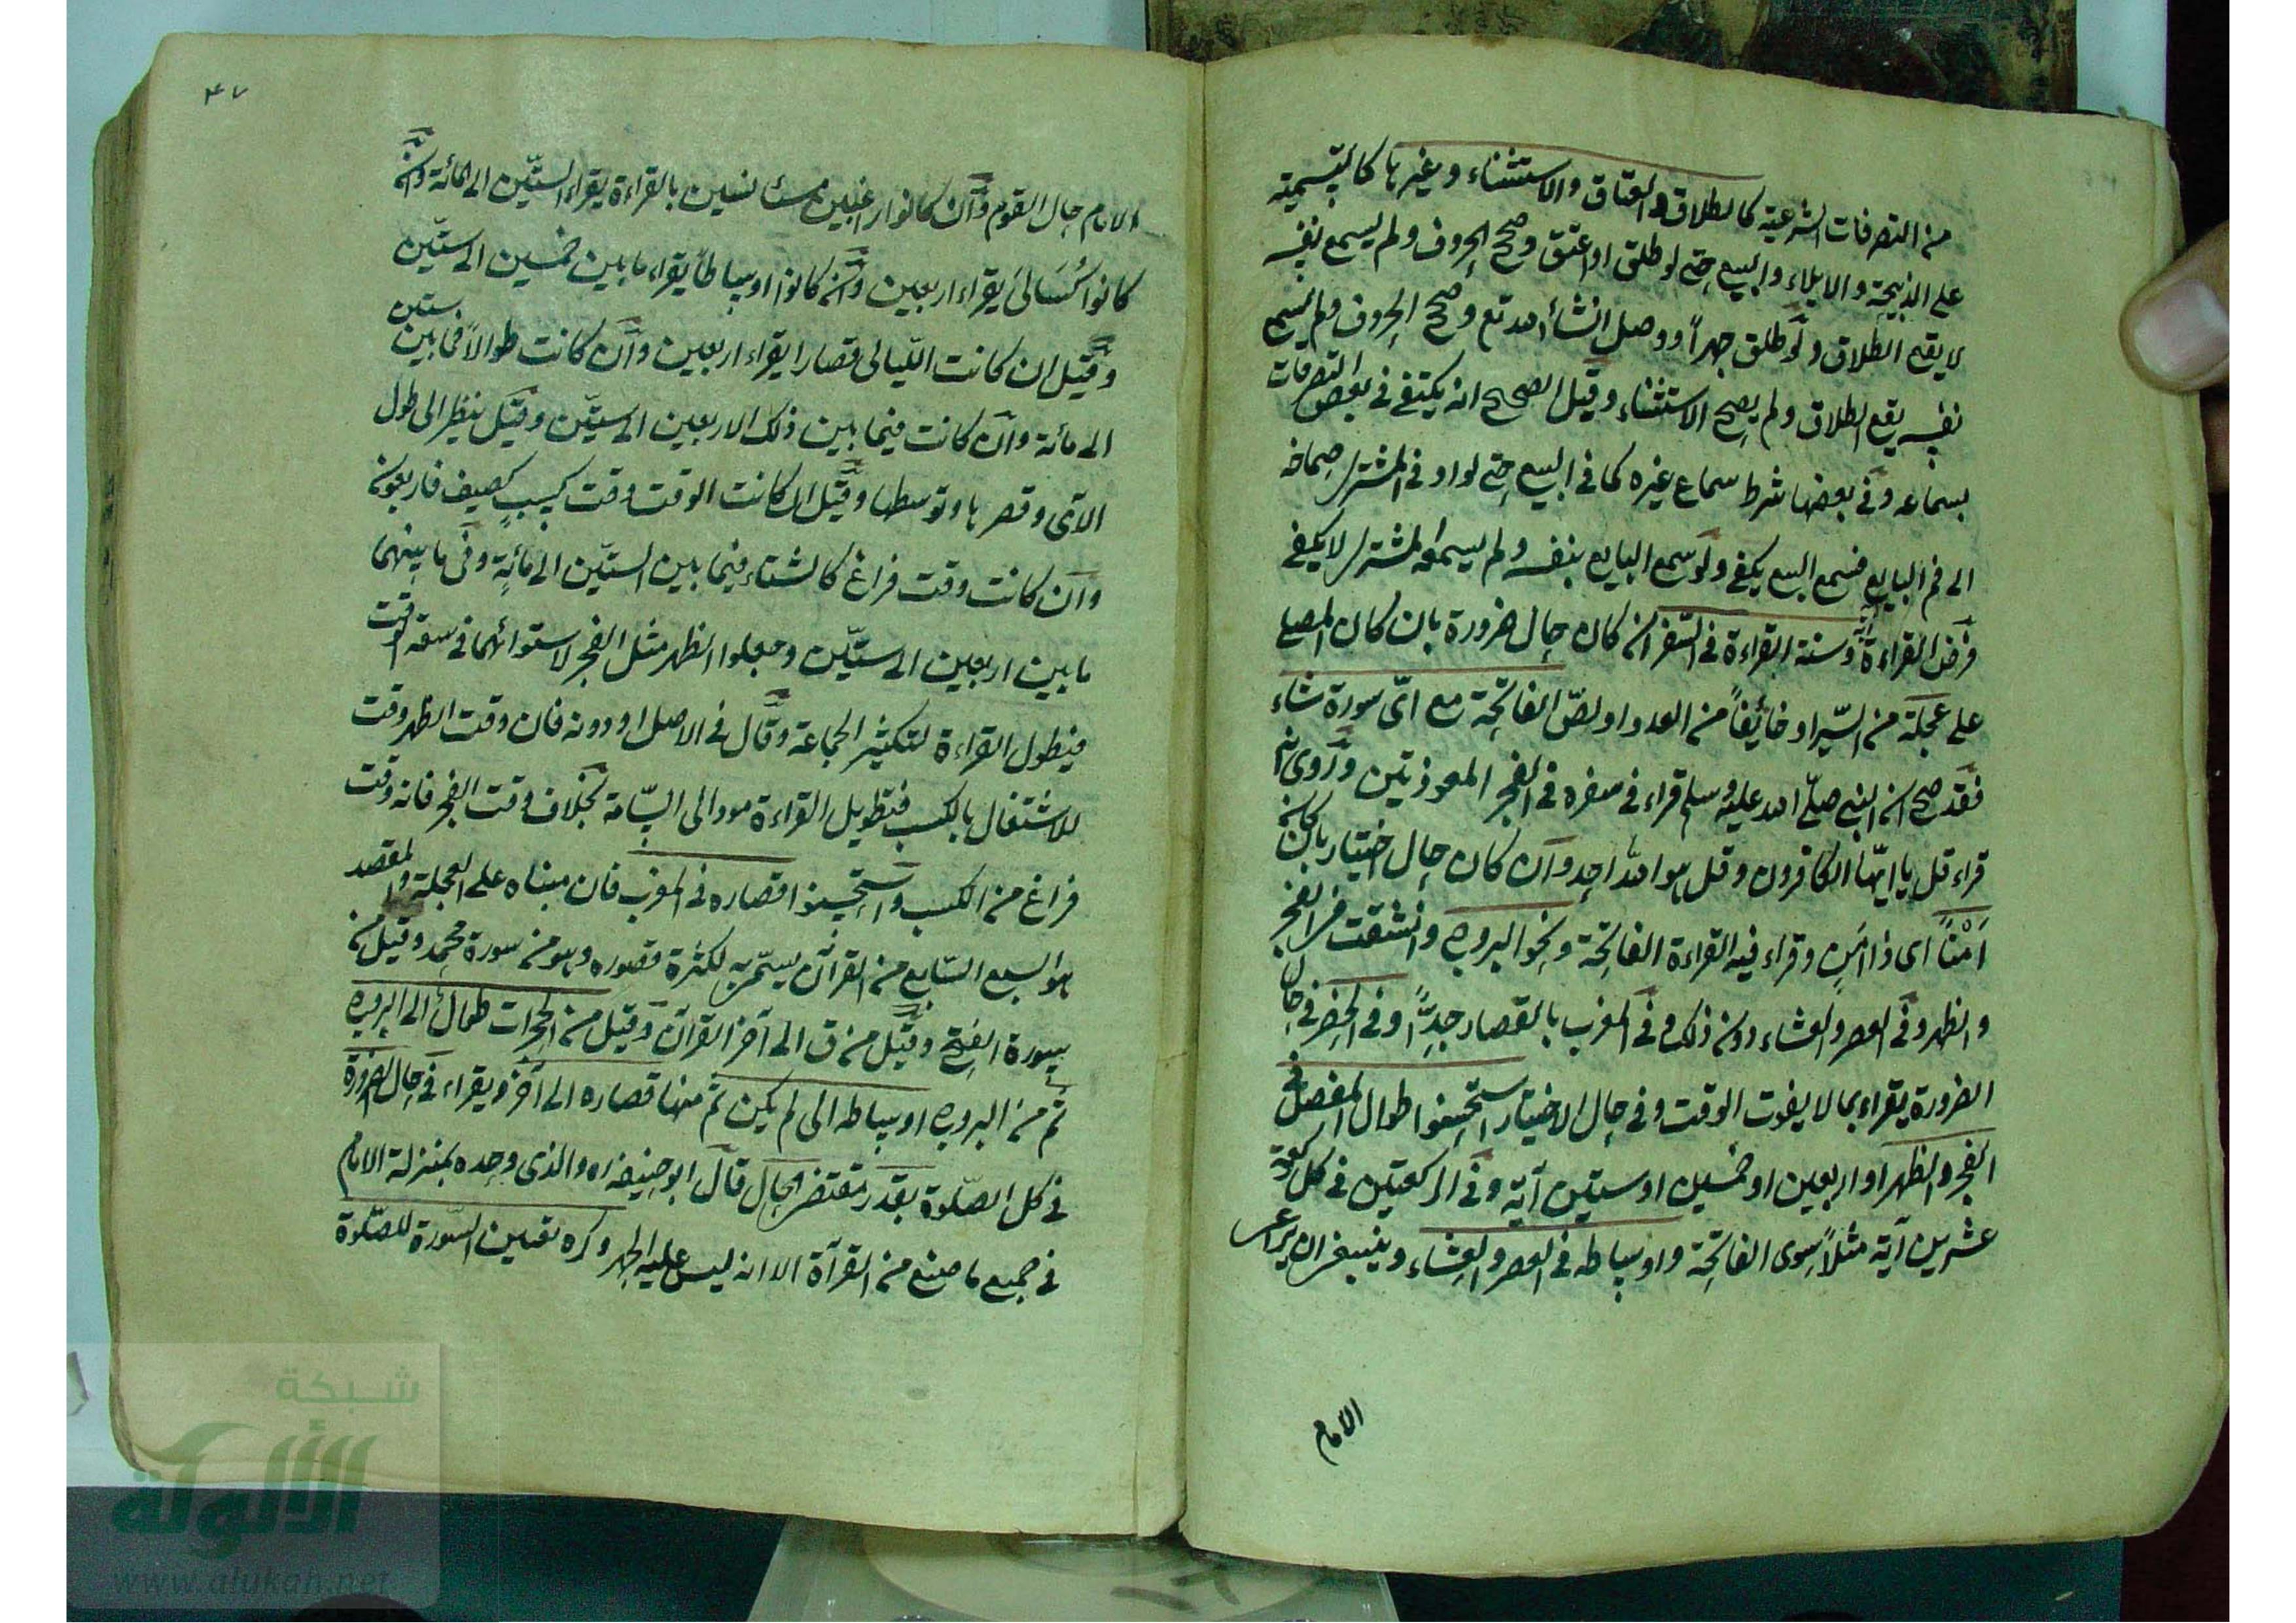 من التصرفات الشرعية كالطلاق والعتاق والاستثناء وغيرها كالتسمية
على الذبيحة والايلاء والبيع حتى لو طلق او اعتق وصحح الحروف ولم يسمع نفسه
لا يقع الطلاق ولو طلق جهراً ووصل انشأ الله تع وصحح الحروف ولم يسمع
نفسه يقع الطلاق ولم يصح الاستثناء وقيل الصحيح انه يكتفى فى بعض التصرفات
بسماعه وفى بعضها شرط سماع غيره كما فى البيع حتى لو ادنى المشترى صماخه
الى فم البايع فسمع البيع يكفى ولو سمع البايع بنفسه ولم يسمعه المشترى لا يكفى
فرض القراءة آية وسنة القراءة فى السفر ان كان حال ضرورة بان كان المصلى
على عجلة من السير او خائفاً من العدو او لصّ الفاتحة مع اىّ سورة شاء
فقد صح ان النبى صلّى الله عليه وسلم قراء فى سفره فى الفجر المعوذتين وروى انه
قراء قل يا ايّها الكافرون وقل هو الله احد وان كان حال اختيار بان كان
اَمْناً اى ذا امنٍ وقراء فيه القراءة الفاتحة ونحو البروج وانشقت فى الفجر
والظهر وفى العصر والعشاء دون ذلك وفى المغرب بالقصار جدّاً وفى الحضر فى حال
الضرورة يقراء بما لا يفوت الوقت وفى حال الاختيار استحسنوا طوال المفصل فى
الفجر والظهر او اربعين او خمسين او ستين آية وفى الركعتين فى كل ركعة
عشرين آية مثلاً سوى الفاتحة واوساطه فى العصر والعشاء وينبغى ان يراعى
الامام
٤٧
الامام حال القوم وان كانوا راغبين مستأنسين بالقراءة يقراء الستّين الى المائة وان
كانوا كُسَالىَ يقراء اربعين وان كانوا اوساطاً يقراء ما بين خمسين الى ستّين
وقيل ان كانت اللّيالى قصارا يقراء اربعين وان كانت طوالاً فما بين ستين
الى مائة وان كانت فيما بين ذلك الاربعين الى ستّين وقيل ينظر الى طول
الآى وقصرها وتوسطها وقيل ان كانت الوقت وقت كسبٍ كصيف فاربعون
وان كانت وقت فراغ كالشتاء فيما بين الستّين الى مائةٍ وفى ما بينهما
ما بين اربعين الى ستّين وجعلوا الظهر مثل الفجر لاستوائهما فى سعة الوقت
فيطول القراءة لتكثير الجماعة وقال فى الاصل او دونه فان وقت الظهر وقت
للاشتغال بالكسب فتطويل القراءة مود الى السّامة بخلاف وقت الفجر فانه وقت
فراغ من الكسب واستحسنوا قصاره فى المغرب فان مبناه على العجلة والمقصد
هو السبع السّابع من القرآن يسمّى به لكثرة قصوره وهو من سورة محمد وقيل من
سورة الفتح وقيل من ق الى آخر القرآن وقيل من الحجرات طوال الى البروج
ثم من البروج اوساطه الى لم يكن ثم منها قصاره الى آخر ويقراء فى حال الضرورة
فى كل الصّلوة بقدر مقتضى الحال قال ابو حنيفه ره والذى وحده بمنزلة الامام
فى جميع ما صنع من القرآة الا انه ليس عليه الجهر وكره تعيين السّورة للصّلوة
شبكة
الألوكة
www.alukah.net